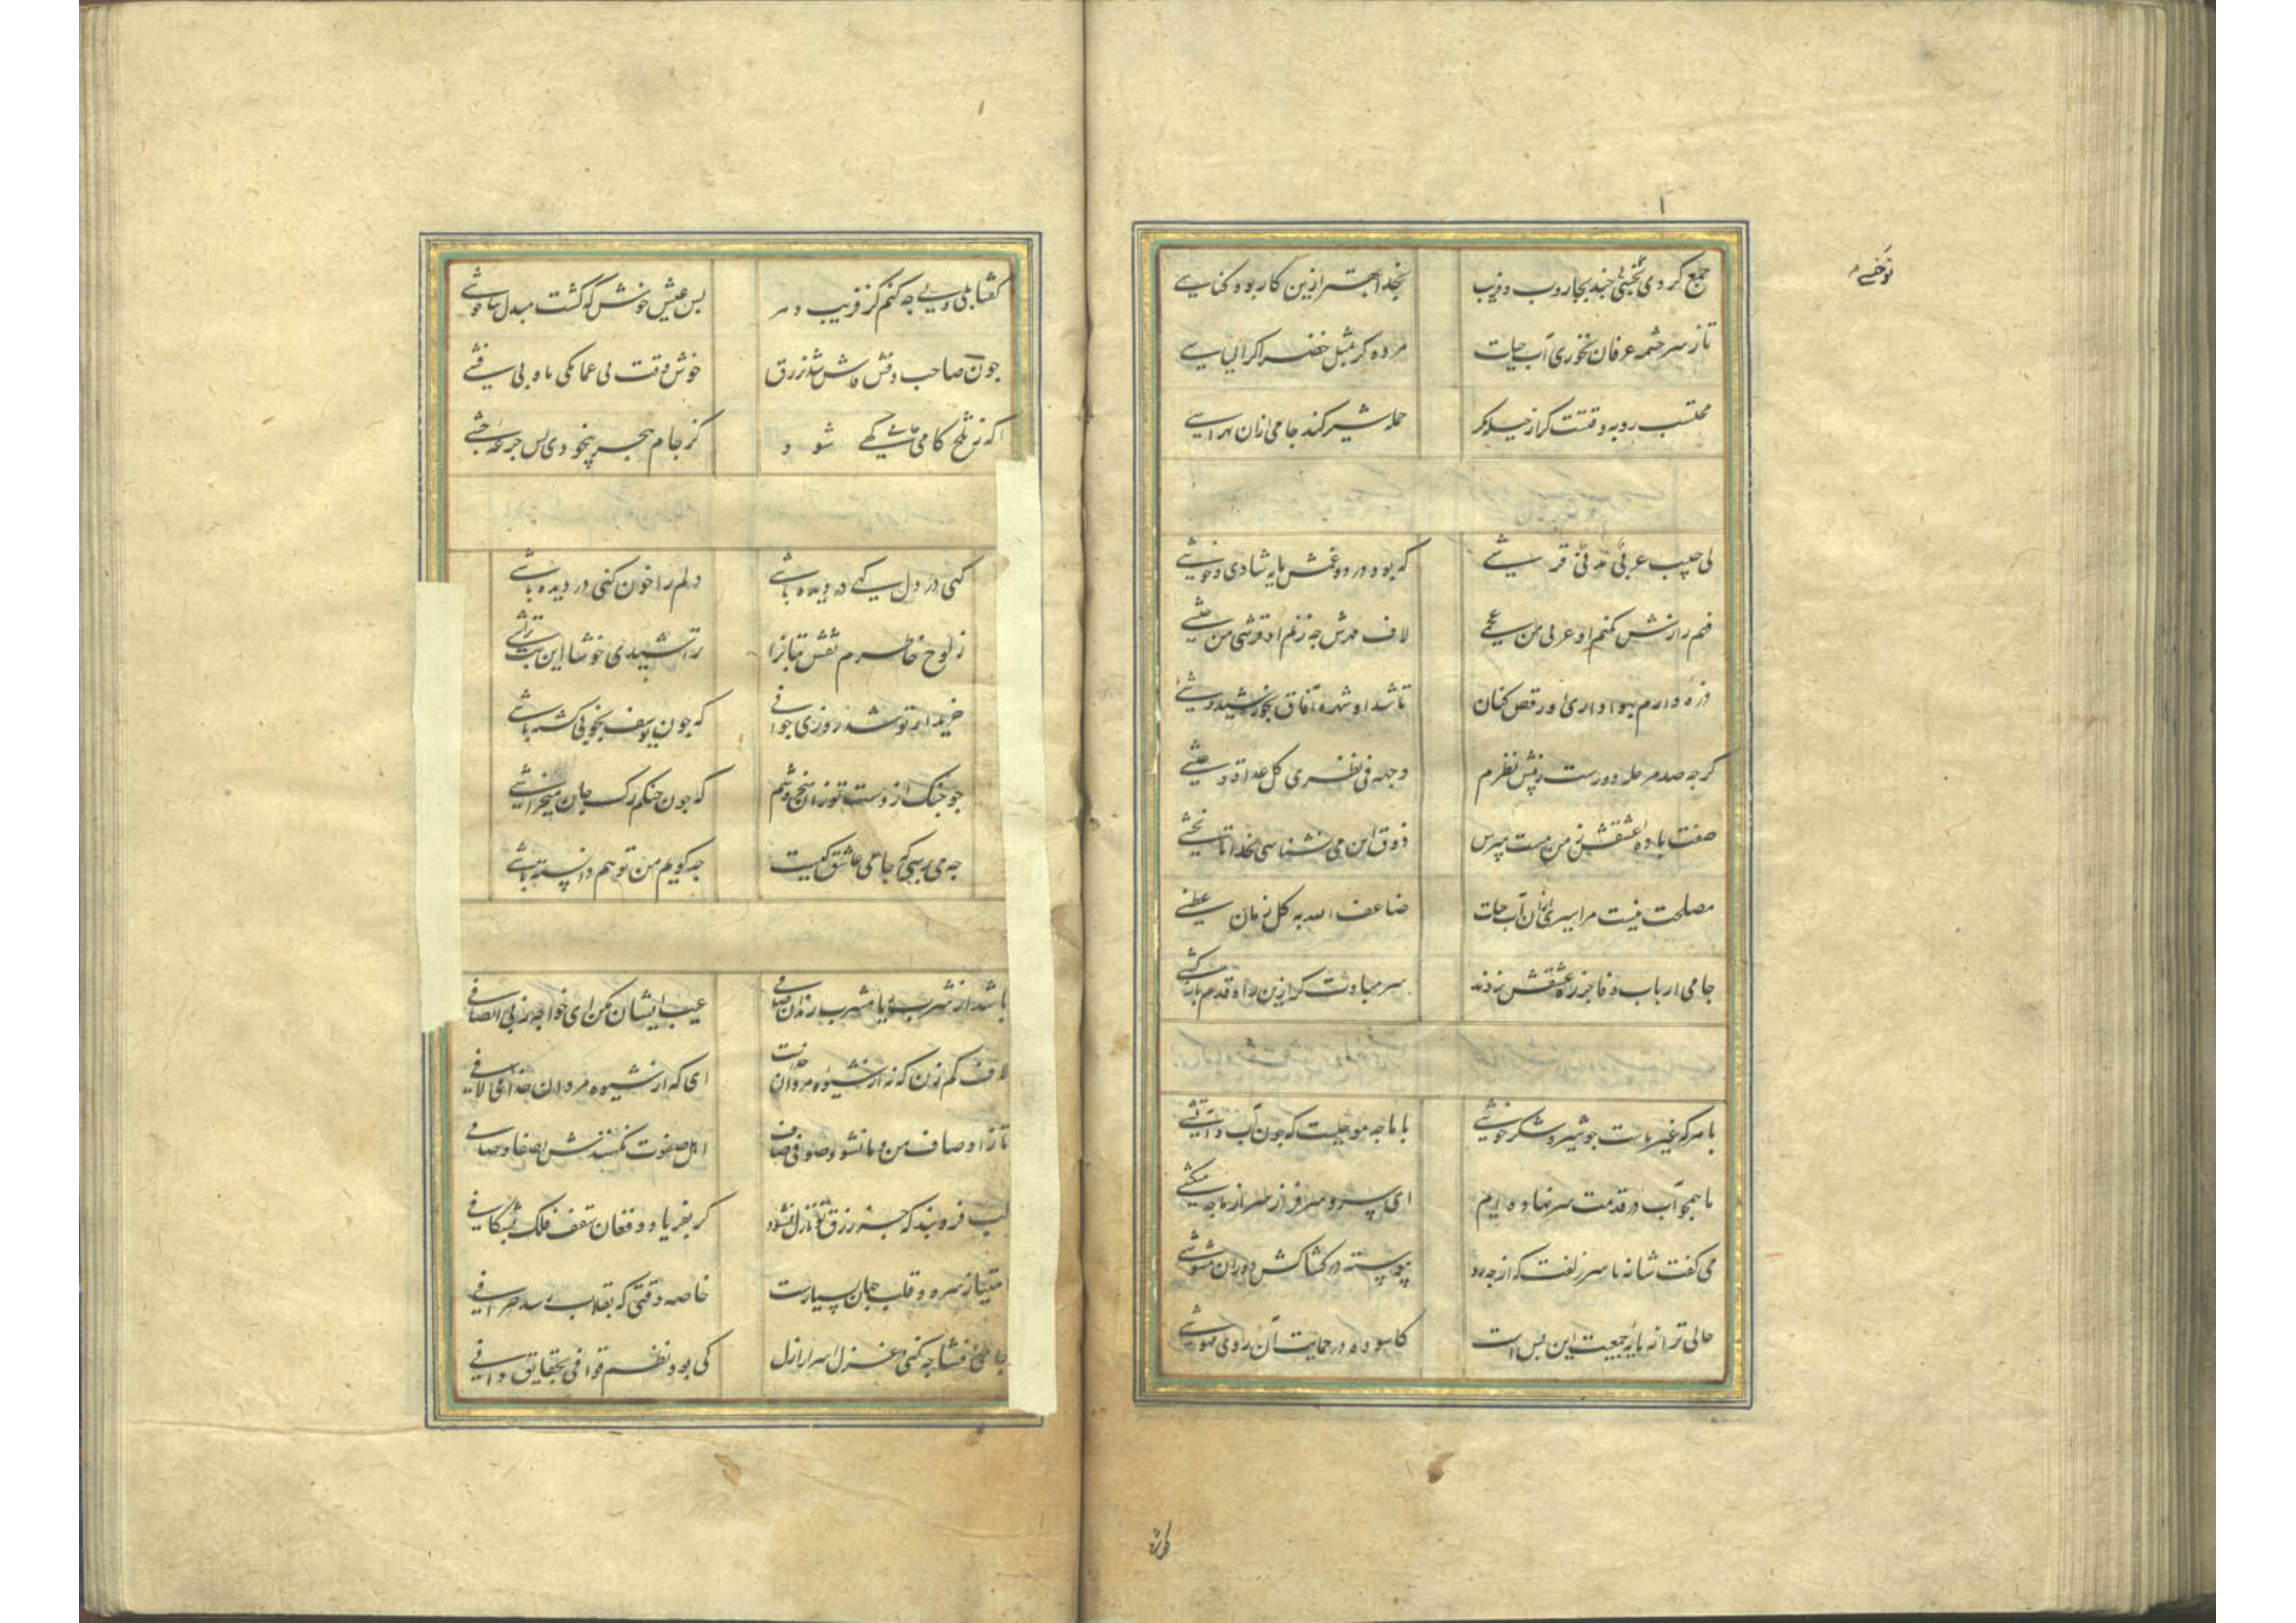 جمع کردی چند بجاروب فریب بخدا بهتر ازین کار بود کناسی
تا ز سرچشمه عرفان نخوری آب حیات مرده کر بمثل خضر اکر الیاسی
محتسب روبه وقتست کر از حیله و مکر حمله شیر کند جامی ازان نهراسی
لی حبیب عربی مدنی قرشی که بود درد و غمش مایه شادی و خوشی
فهم رازش نکنم او عربی من عجمی لاف مهرش چه زنم او قرشی من حبشی
ذره وارم بهواداری او رقص کنان تا شد او شهره آفاق بخورشید وشی
کرچه صد مرحله دورست ز پیش نظرم وجهه فی نظری کل غداة و عشی
صفت باده عشقش ز من مست مپرس ذوق این می نشناسی بخدا تا نچشی
مصلحت نیست مرا سیری ازان آب حیات ضاعف الله به کل زمان عطشی
جامی ارباب وفا جز ره عشقش نروند سر مبادت کر ازین راه قدم بازکشی
با هرکه غیر ماست چو شیر و شکر خوشی با ما چه موجبست که چون آب و آتشی
ما همچو آب در قدمت سر نهاده ایم ای سرو سرفراز سر از ما چه میکشی
می کفت شانه با سر زلفت که از چه رو پیوسته در کشاکش دوران مشوشی
حالی ترا ز مایه جمعیت این بس است کاسوده در حمایت آن روی مهوشی
کفتا چه کنم کز فریب دهر بس عیش خوش که کشت مبدل بناخوشی
چون صاحب وقش فاش شد زرق خوش وقت بی عمامکی ما و بی فشی
که ز تلخ کامی شود کز جام هجر بیخودی بس جرعه چشی
کهی در دل کهی در دیده باشی دلم را خون کنی در دیده باشی
ز لوح خاطرم نقش بتان را تراشیدی خوشا این بت تراشی
خریدار تو شد روزی جوانی که چون یوسف بخوبی کشته باشی
چو چنک از دست تو زان میخروشم که چون چنکم رک جان میخراشی
چه می پرسی که جامی عاشق کیست چه کویم من تو هم دانسته باشی
باشد از شرب ریا مشرب رندان صافی عیب ایشان مکن ای خواجه ز بی انصافی
لاف کم زن که نه از شیوه مردان خداست ای که از شیوه مردان خدا می لافی
تا ز اوصاف من و ما نشود صوفی صاف اهل صفوت نکنندش بصفا وصافی
لب فروبند که جز رزق تو نازل نشود کر بفریاد و فغان سقف فلک بشکافی
امتیاز سره و قلب جهان بسیارست خاصه وقتی که بقلاب رسد صرافی
جامی افشا چه کنی در غزل اسرار ازل کی بود نظم قوافی بحقایق وافی